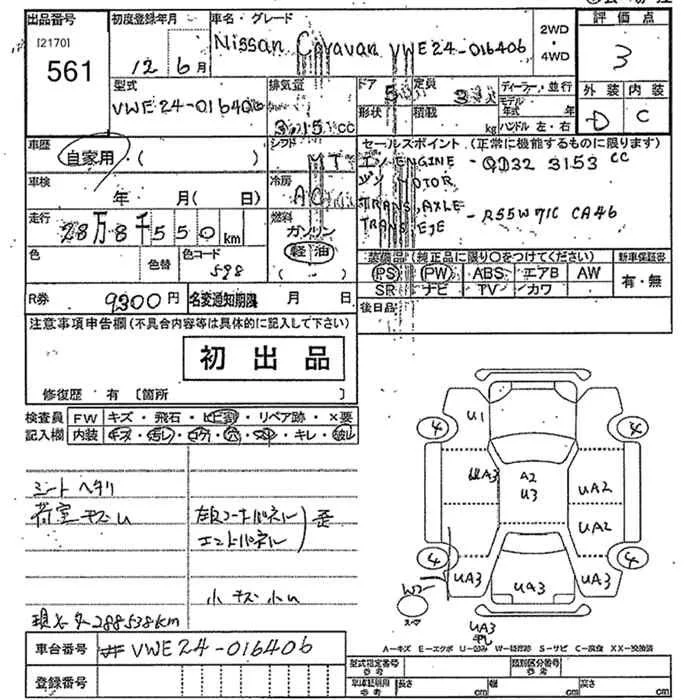 出品番号 初度登録年月 車名・グレード 評価点
[2170] 561
12年6月
Nissan Caravan VWE24-016406
2WD・4WD
3
型式 排気量 ドア 定員 ディーラー・並行
VWE24-016406 3.15 CC 5 3
形状 積載 kg モデル年式 年 ハンドル 左・右
外装 内装
D C
車歴 自家用・( ) シフト MT
セールスポイント (正常に機能するものに限ります)
ENGINE - QD32 3153 CC
MOTOR
TRANS,AXLE
TRANS EJE - R55W71C CA46
車検 年 月( 日) 冷房 AC
走行 28万8千550km 燃料 ガソリン 軽油 ( )
色 色替 色コード 598
装備品 (純正品に限り○をつけてください) 新車保証書
PS PW ABS エアB AW 有・無
SR ナビ TV カワ
R券 9300円 名変通知期限 月 日 後日品
注意事項申告欄(不具合内容等は具体的に記入して下さい)
初出品
修復歴 有 [箇所 ]
検査員 FW キズ・飛石・ヒビ割・リペア跡・×要
記入欄 内装 キズ・汚レ・コゲ・穴・・キレ・破レ
シート ヘタリ
荷室 キズ U
エンドパネル 歪
小キズ 小U
現メーター 288538km
U1
4 4
UA3 A2 U3 UA2
UA2
4 4
UA3 UA3 UA3
W2
スペア
UA3
A−キズ E−エクボ U−凹み W−補修跡 S−サビ C−腐食 XX−交換済
車台番号 # VWE24-016406
登録番号
型式指定番号 参考 類別区分番号 参考
参考 長さ cm 幅 cm 高さ cm